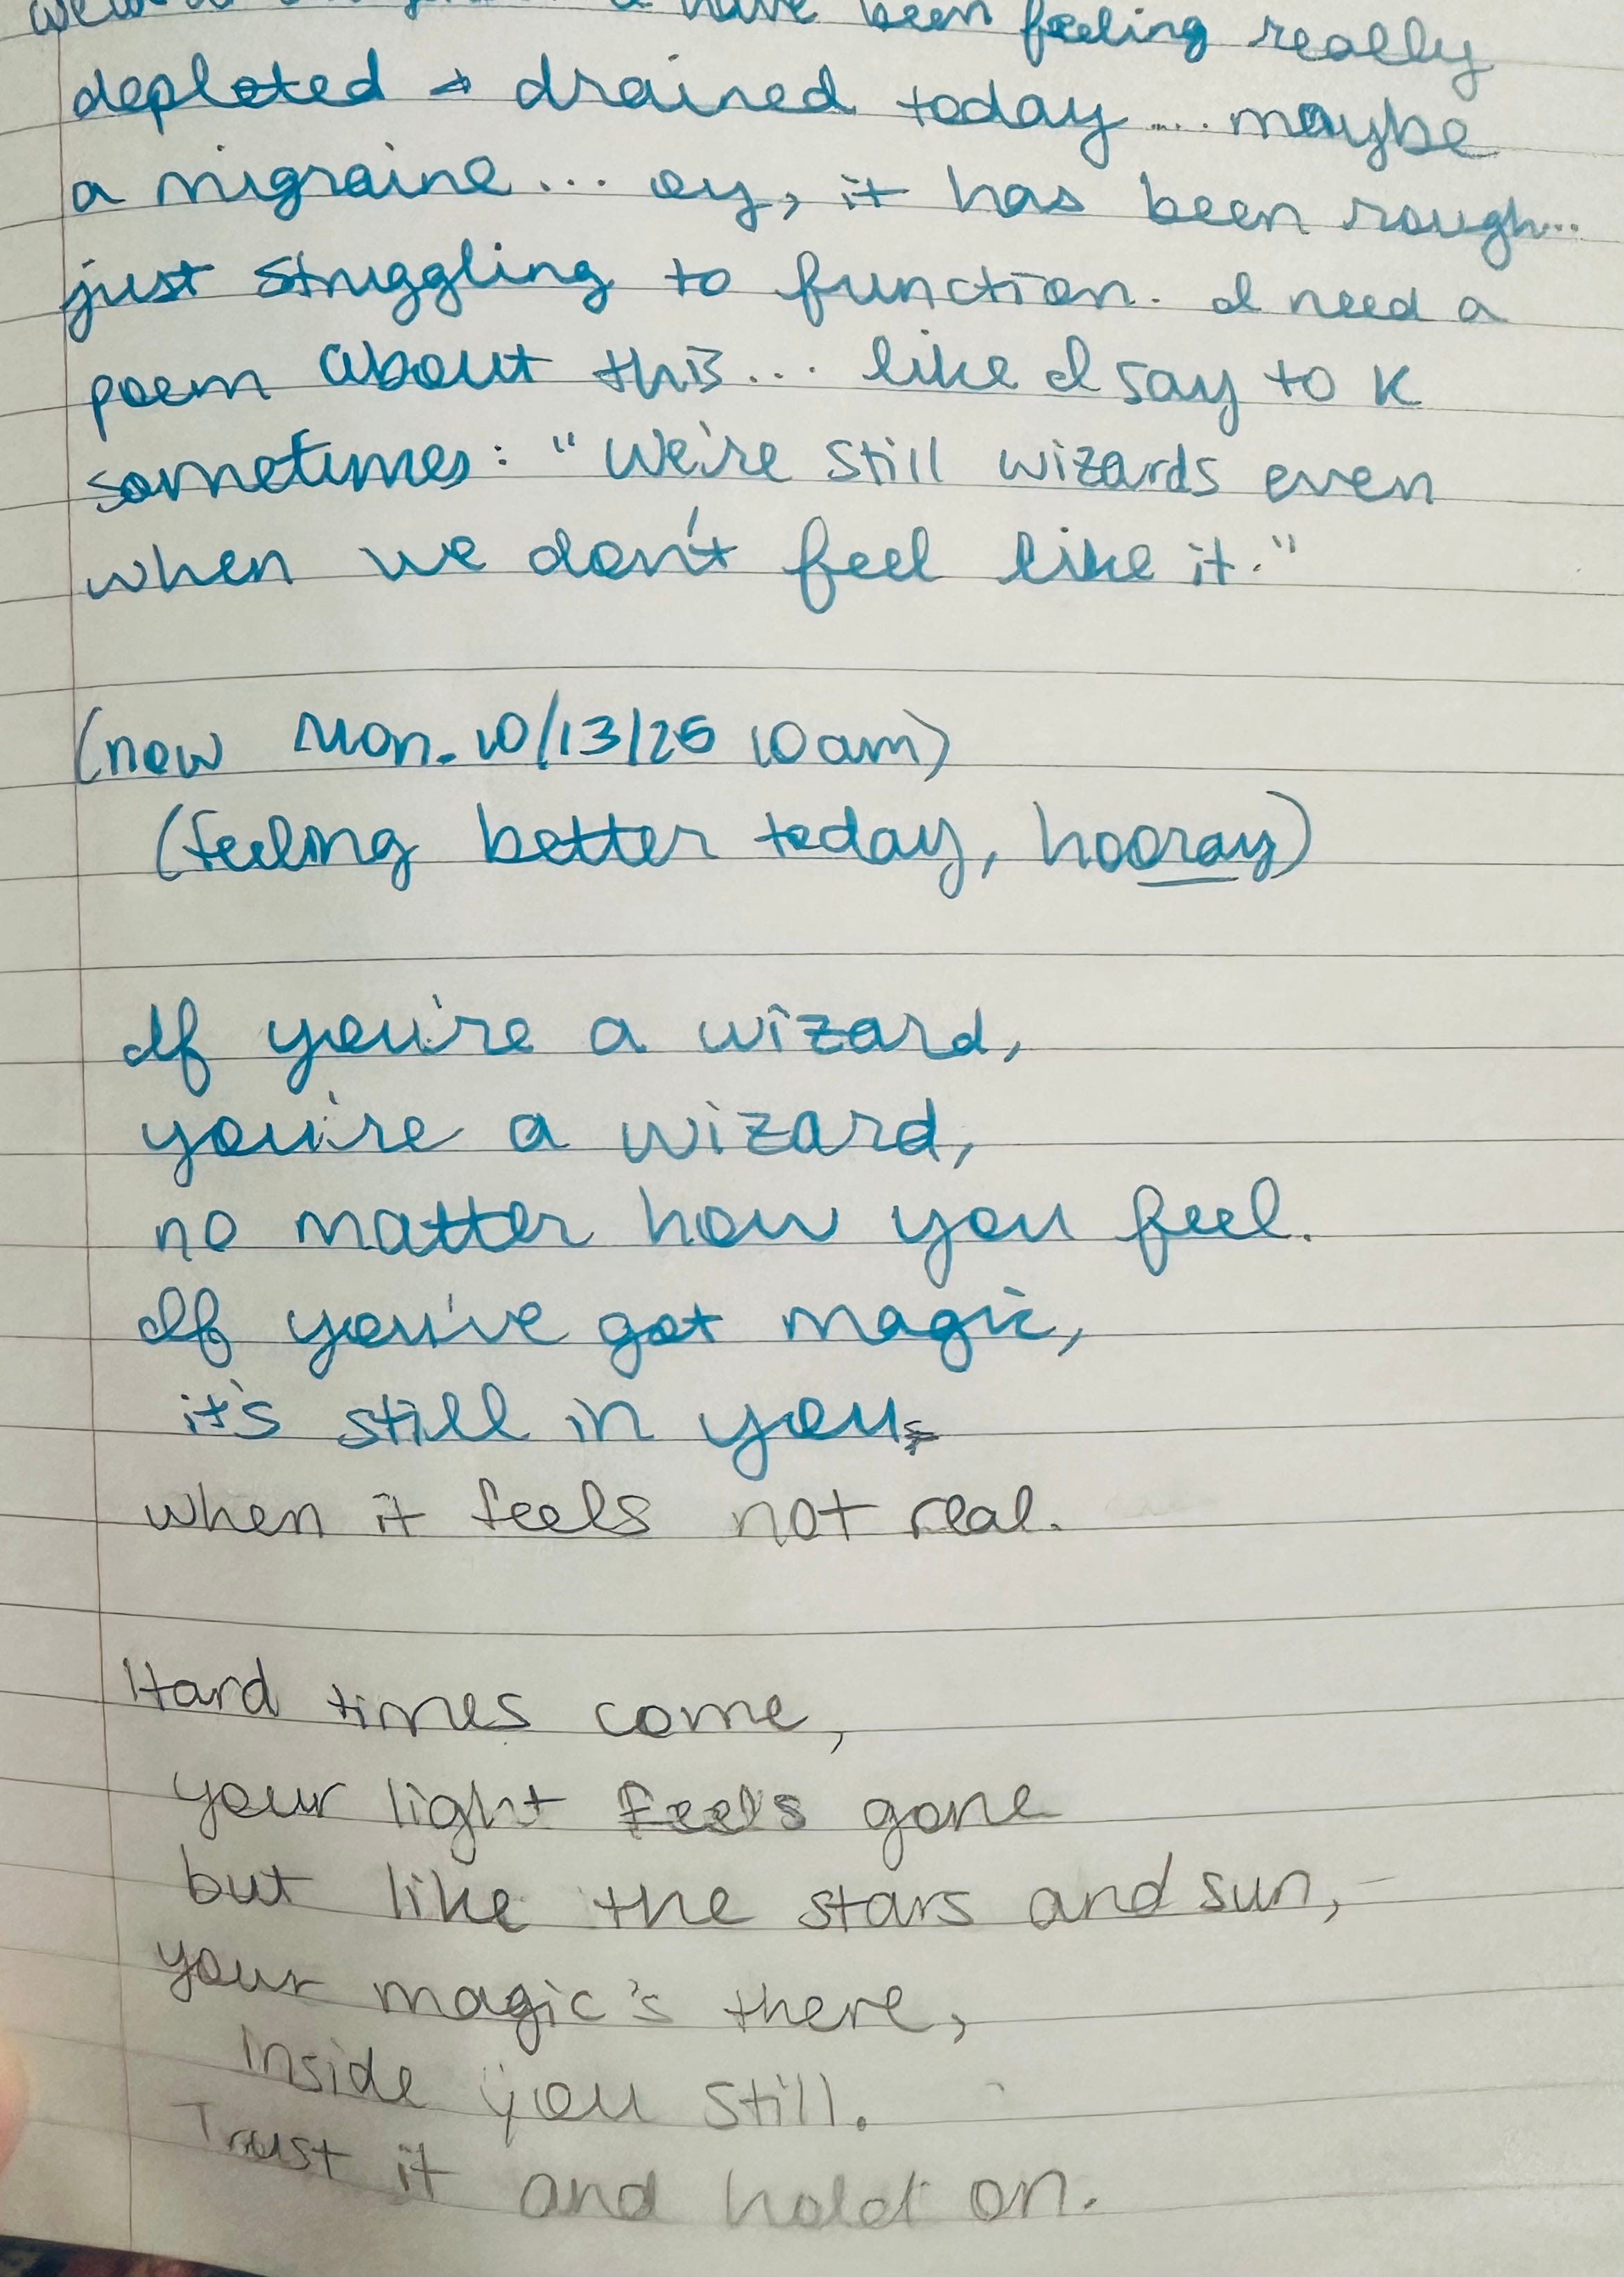 have been feeling really
depleted & drained today.... maybe
a migraine... oy, it has been rough...
just struggling to function. I need a
poem about this... like I say to K
sometimes: "We're still wizards even
when we don't feel like it."
(now Mon. 10/13/25 10am)
(feeling better today, hooray)
If you're a wizard,
you're a wizard,
no matter how you feel.
If you've got magic,
it's still in you
when it feels not real.
Hard times come,
your light feels gone
but like the stars and sun,
your magic's there,
inside you still.
Trust it and hold on.